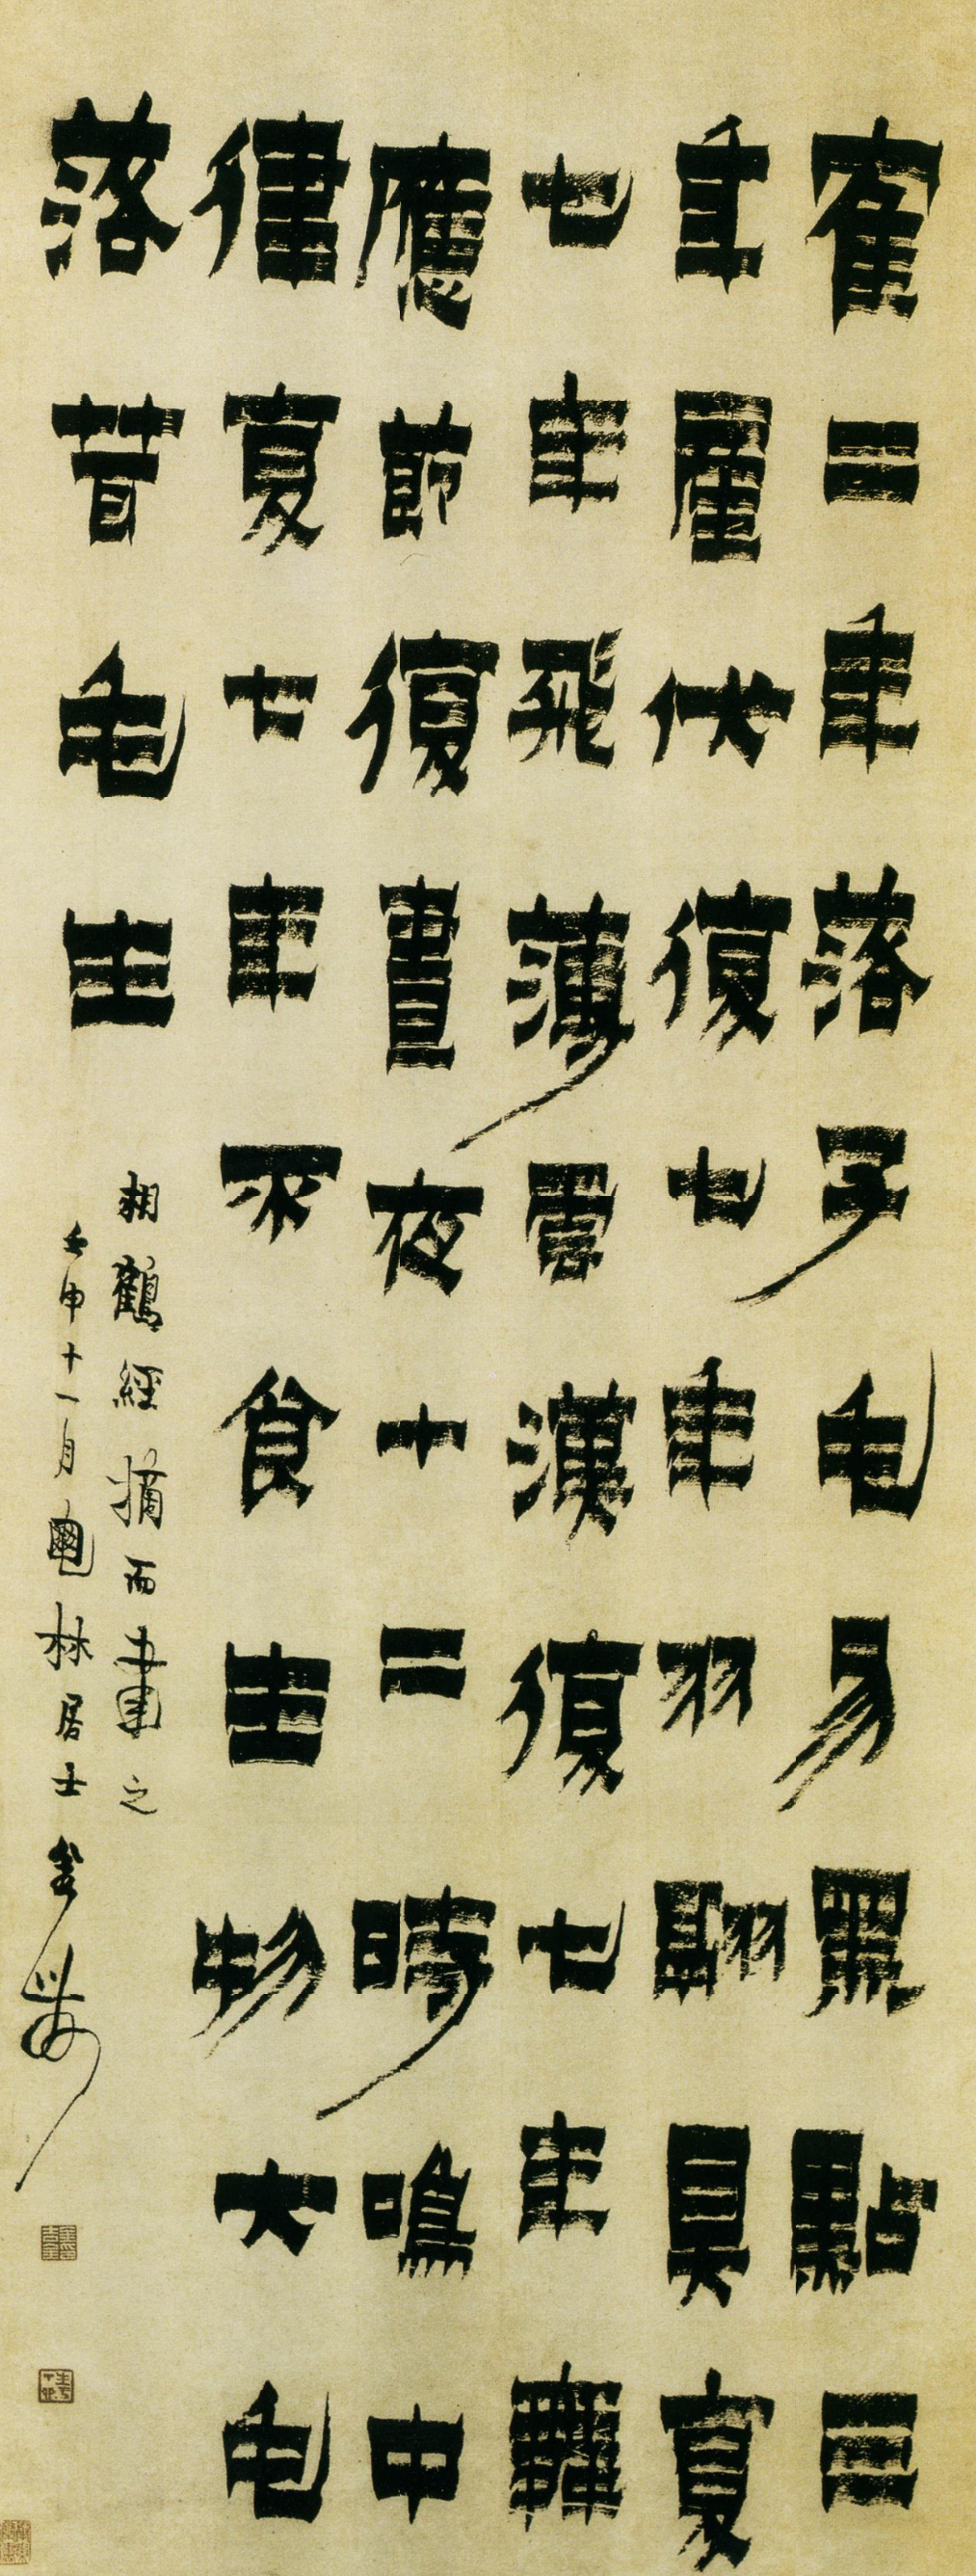 隺二年落子毛易黑點三
年產伏復七年羽翮具夏
七年飛薄雲漢復七年舞
應節復七年晝夜十二時鳴中
律夏七年不食生物大毛
落茸毛生
相鶴經摘而書之
壬申十一月龜林居士金農